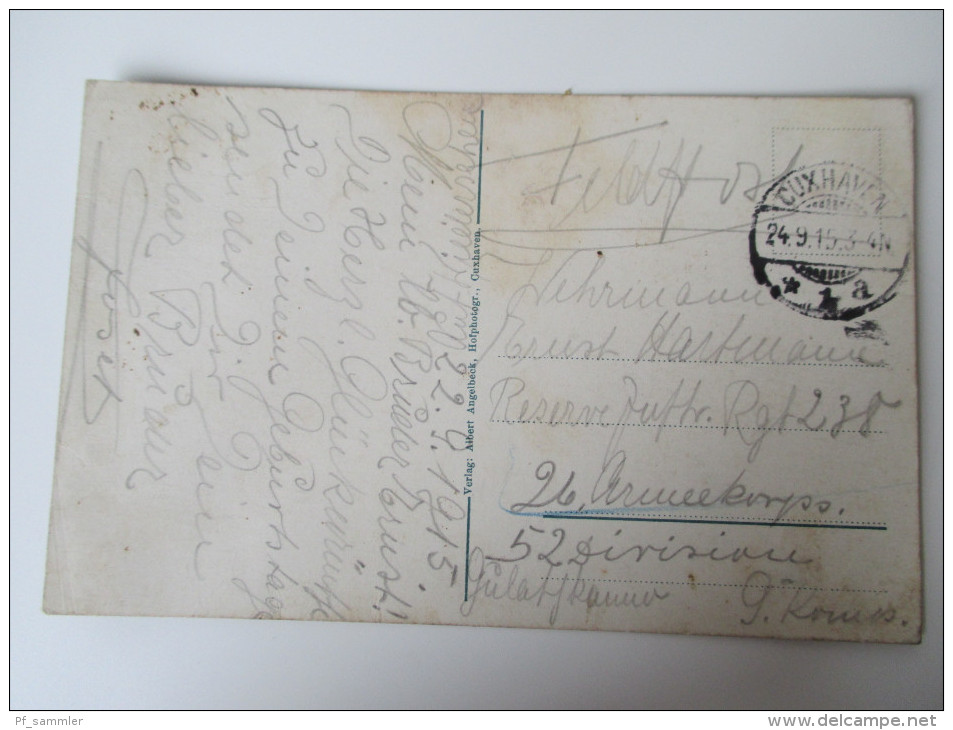 22.9.1915
Mein lb. Bruder Ernst!
Die Herzl. Glückwünsche
zu Deinem Geburtstage
sendet Dir Dein
lieber Bruder
Verlag: Albert Angelbeck, Hofphotogr., Cuxhaven.
Feldpost
CUXHAVEN
24.9.15.3-4N
* 1 a
Wehrmann
Ernst Hartmann
Reserve Inftr. Rgt 238
26. Armeekorps.
52 Division
Pf_sammler
www.delcampe.net